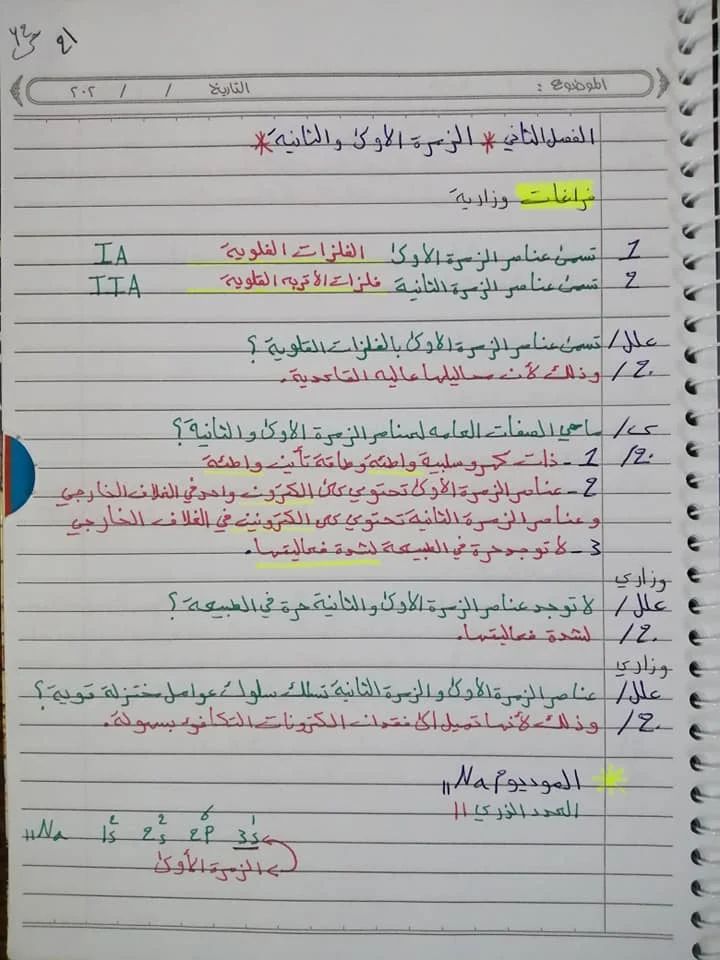 ٢١
الموضوع : التاريخ / / ٢٠٢
الفصل الثاني * الزمرة الاولى والثانية *
فراغات وزارية
1 تسمى عناصر الزمرة الأولى الفلزات القلوية IA
2 تسمى عناصر الزمرة الثانية فلزات الأتربة القلوية IIA
علل/ تسمى عناصر الزمرة الأولى بالفلزات القلوية ؟
ج/ وذلك لأن محاليلها عالية القاعدية.
س/ ماهي الصفات العامه لعناصر الزمرة الأولى والثانية ؟
ج/ 1- ذات كهروسلبية واطئة وطاقة تأين واطئة
2- عناصر الزمرة الأولى تحتوي على الكترون واحد في الغلاف الخارجي
وعناصر الزمرة الثانية تحتوي على الكترونين في الغلاف الخارجي
3- لا توجد حرة في الطبيعة لشدة فعاليتها.
وزاري
علل/ لا توجد عناصر الزمرة الأولى والثانية حرة في الطبيعة ؟
ج/ لشدة فعاليتها.
وزاري
علل/ عناصر الزمرة الأولى والزمرة الثانية تسلك سلوك عوامل مختزلة قوية ؟
ج/ وذلك لأنها تميل الى فقدان الكترونات التكافؤ بسهولة.
* الصوديوم ₁₁Na
العدد الذري 11
₁₁Na 1s² 2s² 2P⁶ 3s¹
الزمرة الأولى